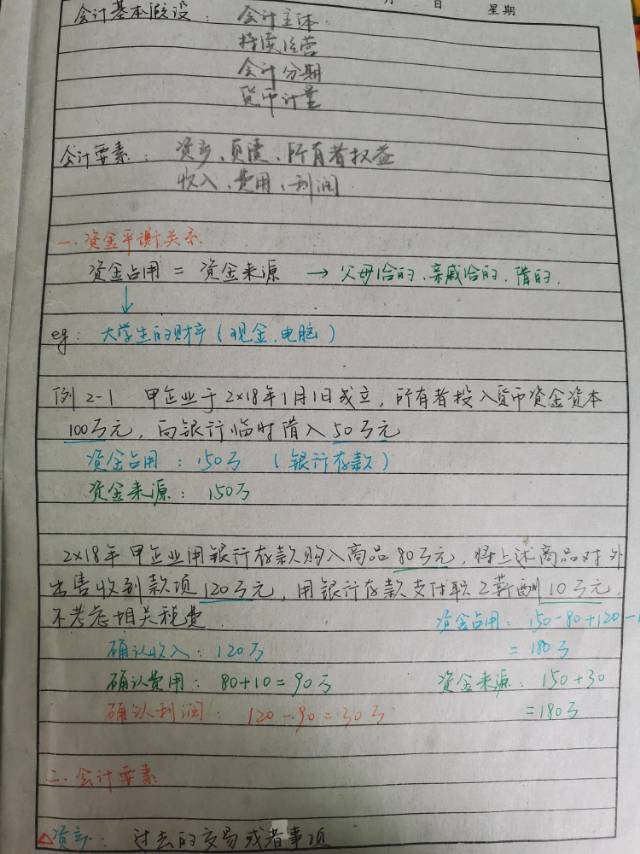 月 日 星期
会计基本假设: 会计主体
持续经营
会计分期
货币计量
会计要素: 资产、负债、所有者权益
收入、费用、利润
一、资金平衡关系
资金占用 = 资金来源 → 父母给的、亲戚给的、借的.
↓
eg: 大学生的财产(现金、电脑)
例2-1 甲企业于2×18年1月1日成立, 所有者投入货币资金资本
100万元, 向银行临时借入50万元
资金占用: 150万 (银行存款)
资金来源: 150万
2×18年甲企业用银行存款购入商品80万元, 将上述商品对外
出售收到款项120万元, 用银行存款支付职工薪酬10万元,
不考虑相关税费. 资金占用: 150-80+120-1
确认收入: 120万 =180万
确认费用: 80+10=90万 资金来源: 150+30
确认利润: 120-90=30万 =180万
二、会计要素
△资产: 过去的交易或者事项